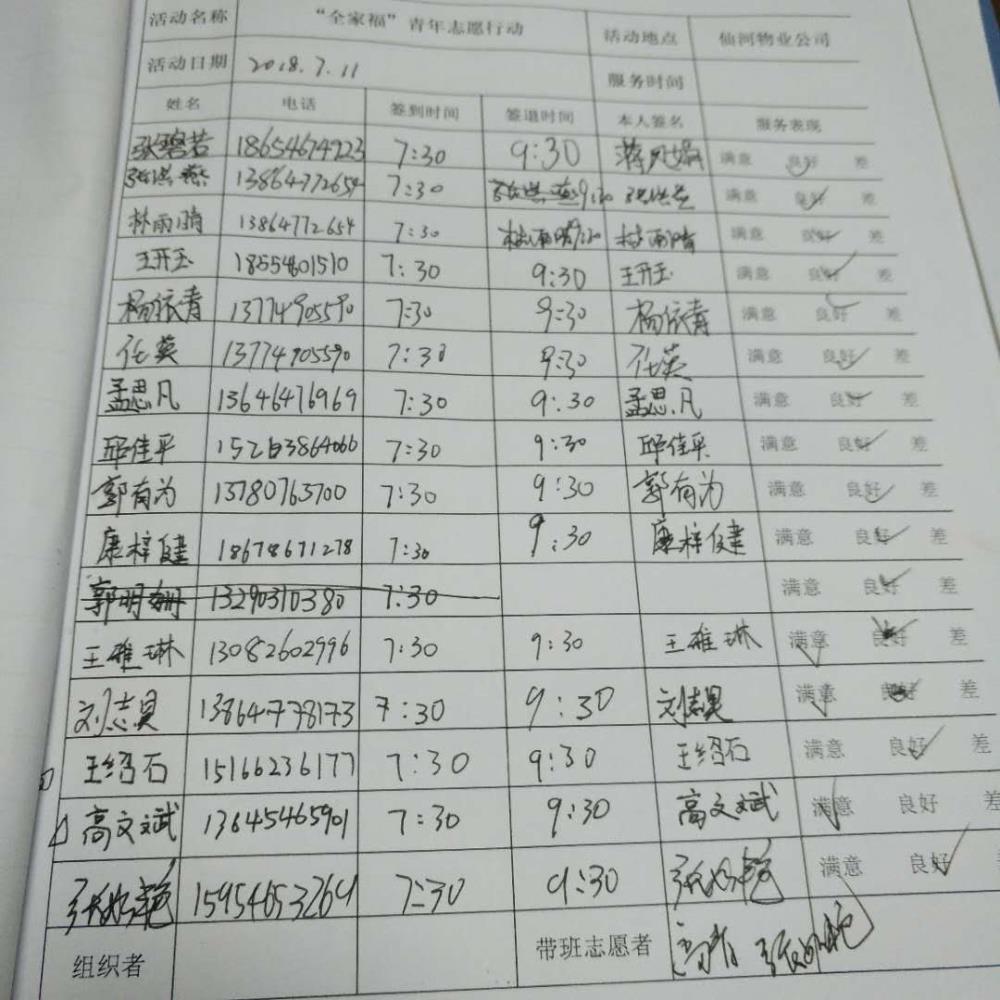 活动名称 “全家福”青年志愿行动 活动地点 仙河物业公司
活动日期 2018.7.11 服务时间
姓名 电话 签到时间 签退时间 本人签名 服务表现
张碧若 18654674723 7:30 9:30 满意 良好 差
张洪燕 13864772654 7:30 张洪燕9:30 张洪燕 满意 良好 差
林雨晴 13864772654 7:30 林雨晴9:30 林雨晴 满意 良好 差
王开玉 18554801510 7:30 9:30 王开玉 满意 良好 差
杨依青 13774905590 7:30 9:30 杨依青 满意 良好 差
任英 13774905590 7:30 9:30 任英 满意 良好 差
孟思凡 13646476969 7:30 9:30 孟思凡 满意 良好 差
邱佳平 7:30 9:30 邱佳平 满意 良好 差
郭有为 13780763700 7:30 9:30 郭有为 满意 良好 差
康梓健 18678671278 7:30 9:30 康梓健 满意 良好 差
郭明姗 13290310380 7:30 满意 良好 差
王雅琳 13082602996 7:30 9:30 王雅琳 满意 良好 差
刘志昊 13864778173 7:30 9:30 刘志昊 满意 良好 差
王绍石 15166236177 7:30 9:30 王绍石 满意 良好 差
高文斌 13645465901 7:30 9:30 高文斌 满意 良好 差
15954653269 7:30 9:30 满意 良好 差
组织者 带班志愿者